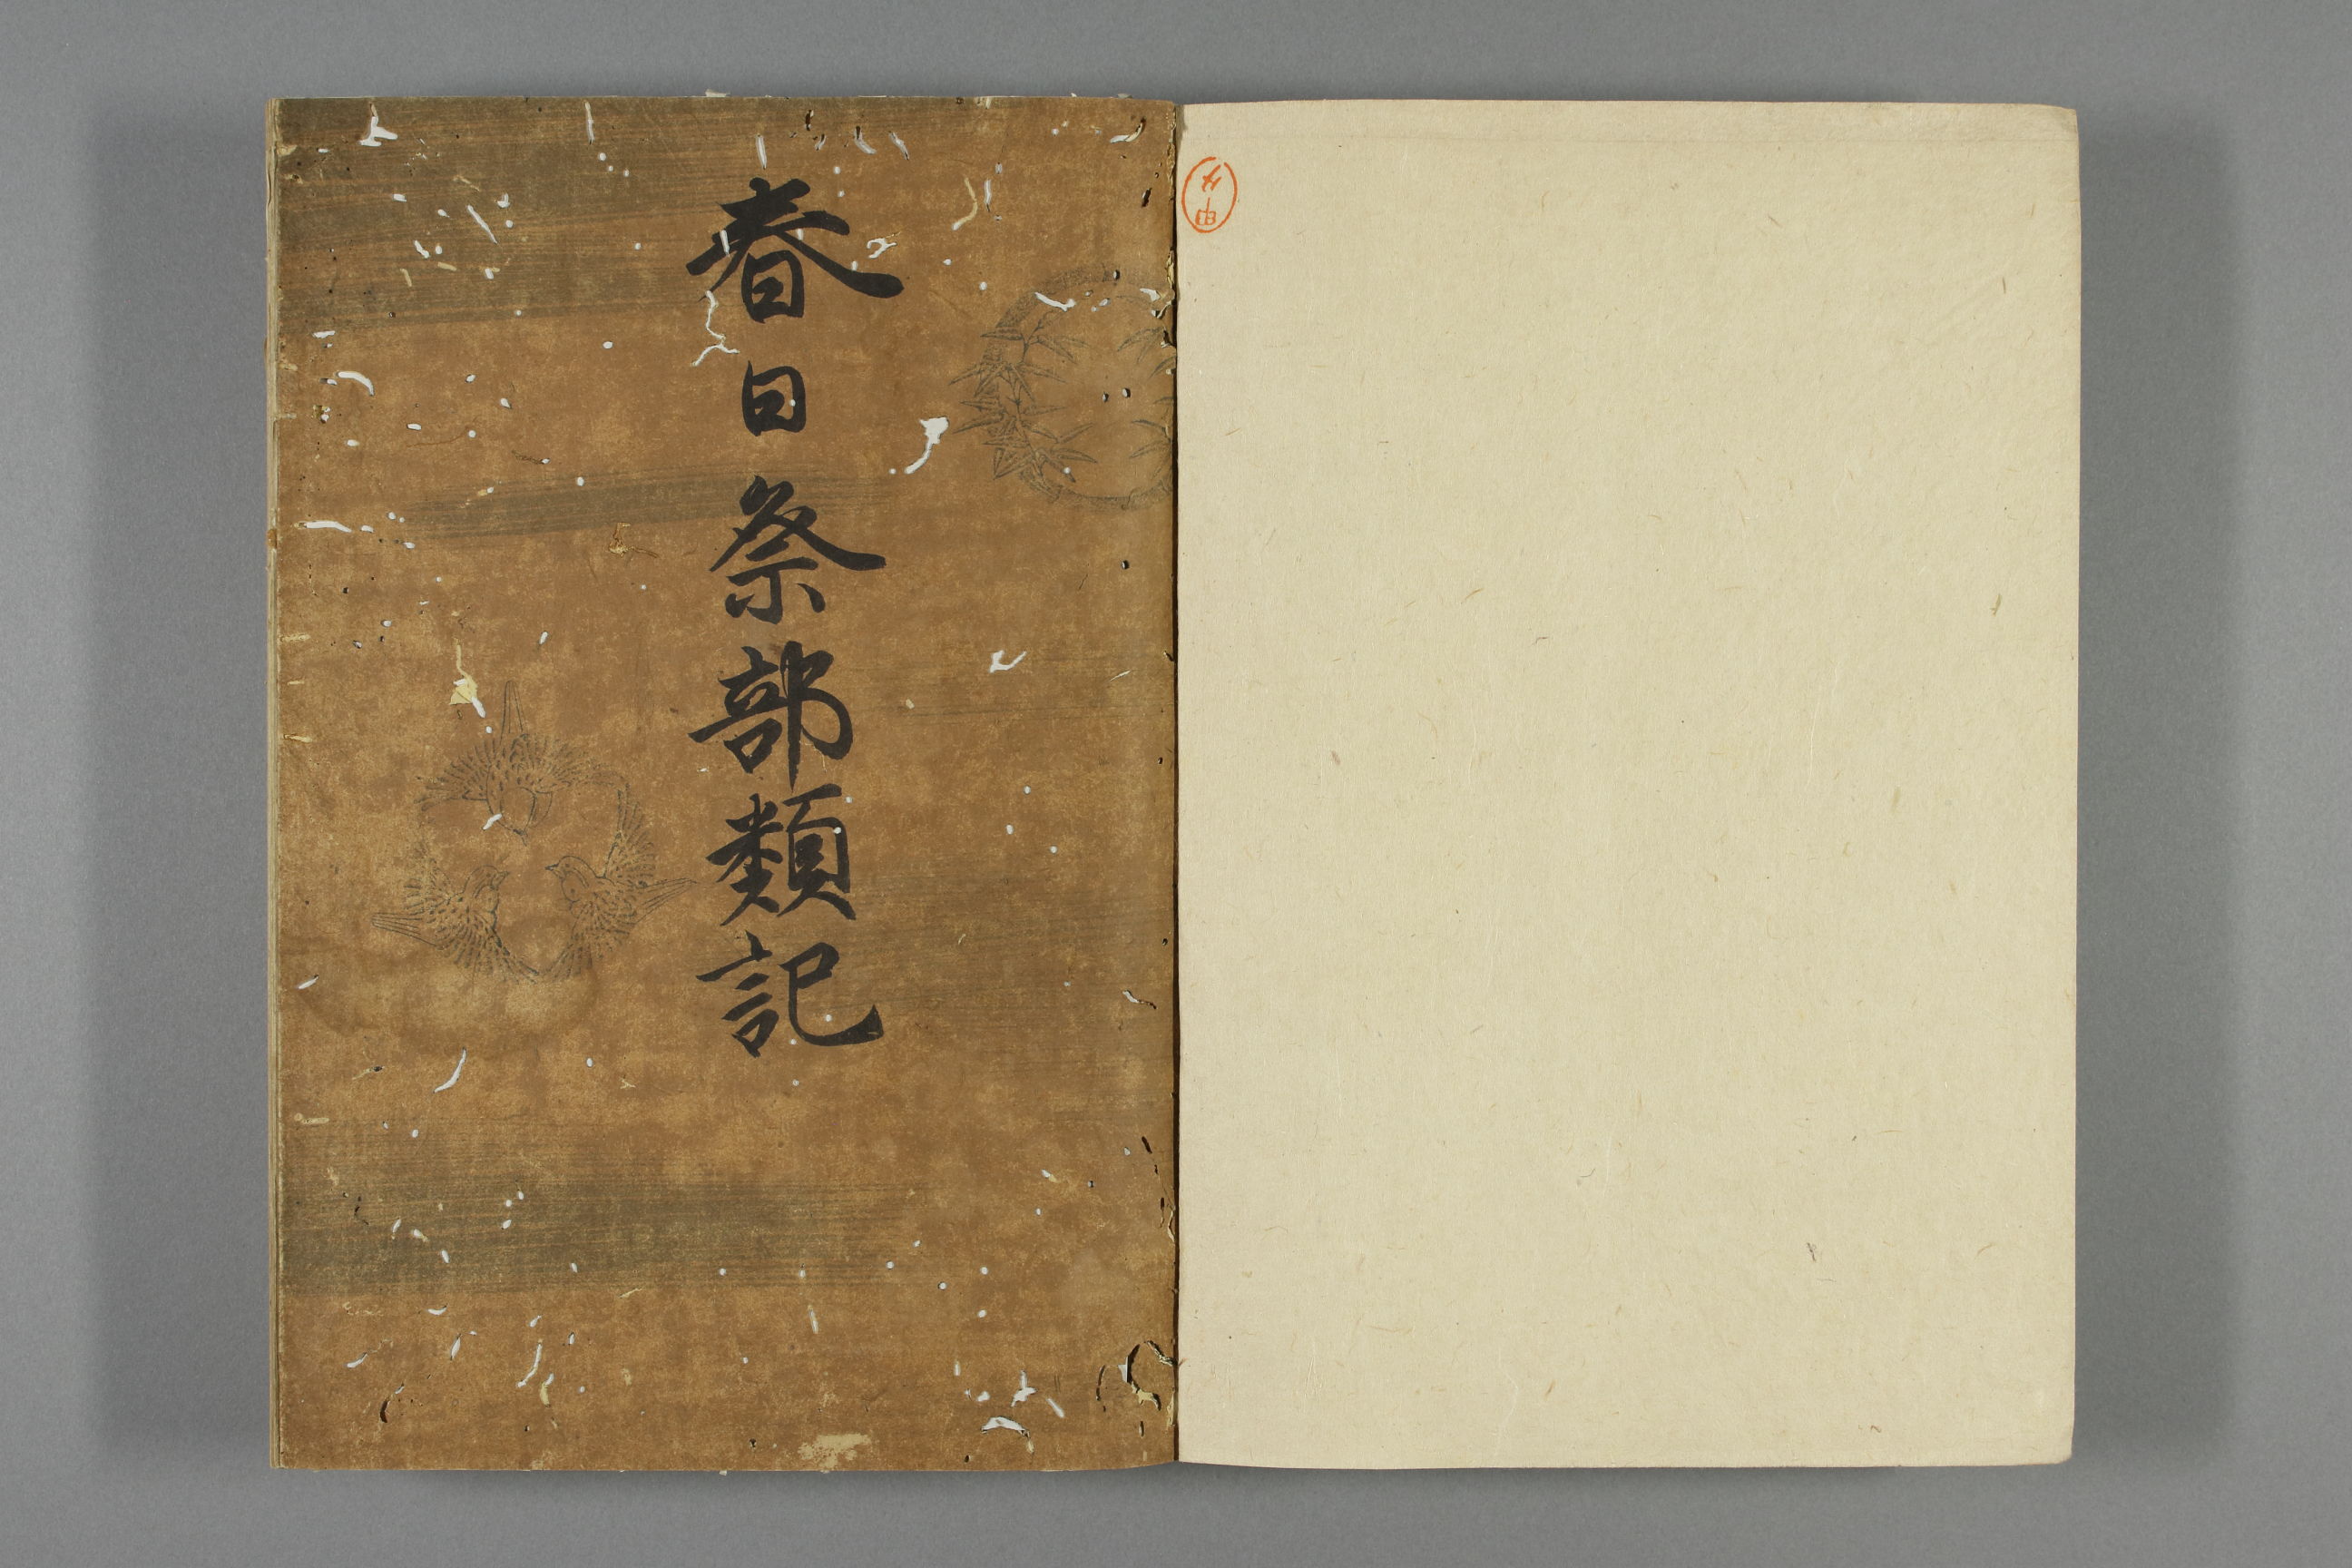 春日祭部類記